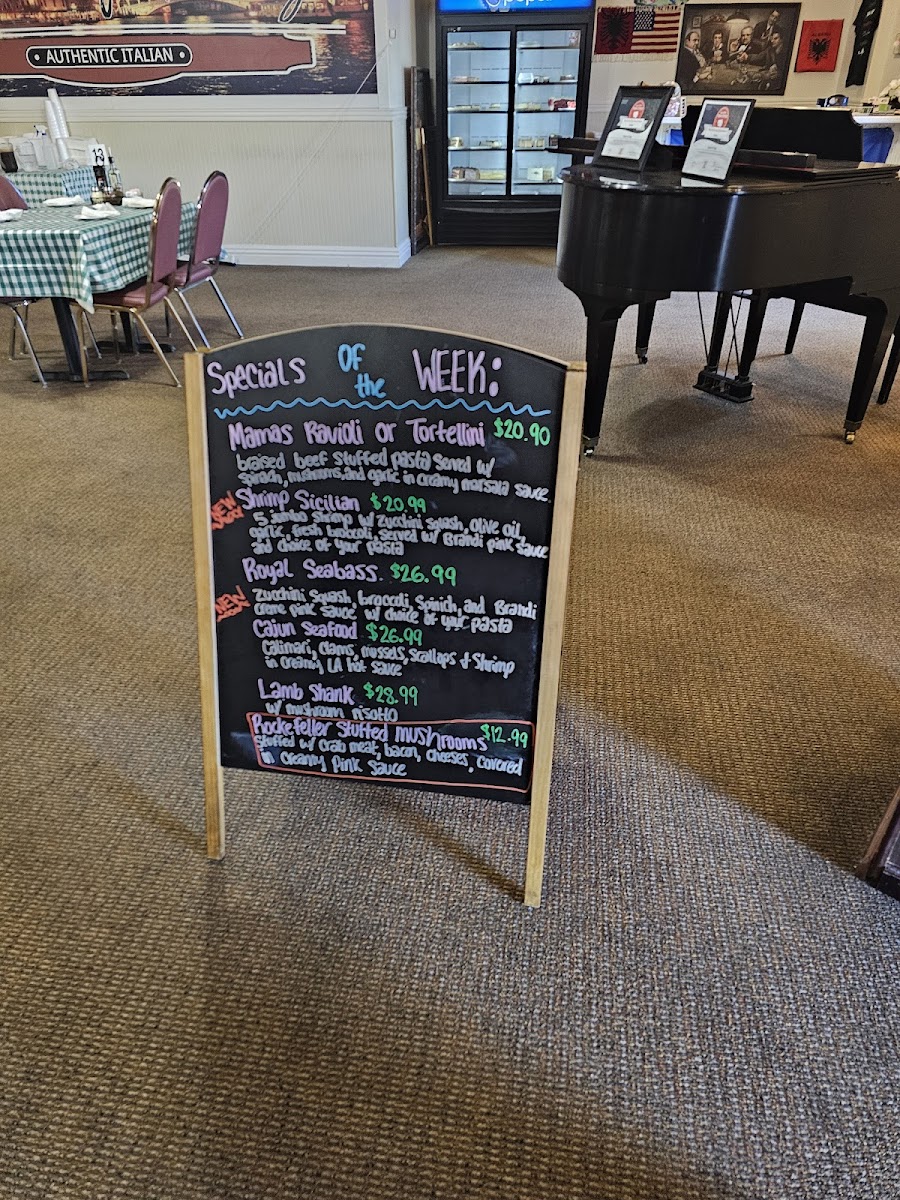 AUTHENTIC ITALIAN
pepsi
13
Specials Of the WEEK:
Mamas Ravioli or Tortellini $20.90
braised beef stuffed pasta) served w/
spinach, mushrooms and garlic in creamy marsala sauce.
NEW
Shrimp Sicilian $20.99
5 jumbo shrimp w/ zucchini squash, olive oil,
garlic, fresh broccoli, served w/ Brandi pink sauce
and choice of your pasta
Royal Seabass. $26.99
NEW
Zucchini squash, broccoli, Spinich, and Brandi
creme pink sauce w/ choice of your pasta
Cajun Seafood $26.99
Calimari, Clams, mussels, Scallops & Shrimp
in creamy LA hot sauce
Lamb Shank $28.99
w/ mushroom risotto
Rockefeller Stuffed mushrooms $12.99
stuffed w/ crab meat, bacon, cheeses, covered
in creamy pink sauce